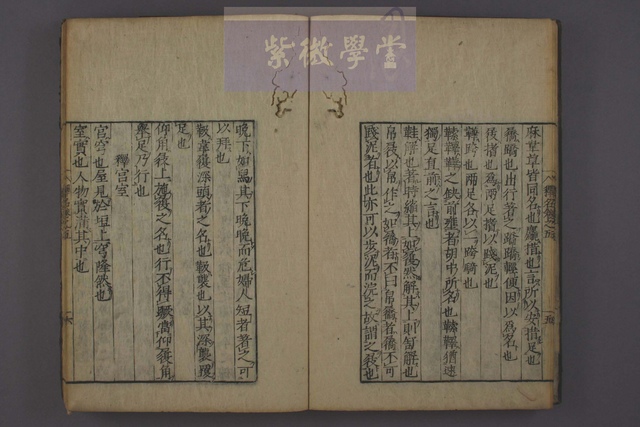 紫微學堂
麻韋草皆同名也屩措也言所以安措足也
後蹻也出行著之蹻蹻輕便因以為名也
後措也為兩足措以踐泥也
鞾跨也兩足各以一跨騎也
鞾之缺前壅者胡中所名也
獨足直前之言也
鞋解也著時縮其上如履然解其上則舒解也
帛屐以帛作之如屩者不曰帛屩者屩不可
踐泥者也此亦可以步泥而浣之故謂之屐也
晚下如舄其下晚晚而危婦人短者著之可
以拜也
靸韋履深頭者之名也靸襲也以其深襲覆
足也
仰角屐上施履之名也行不得蹶當仰履角
舉足乃行也
釋宮室
宮穹也屋見於垣上穹隆然也
室實也人物實滿其中也